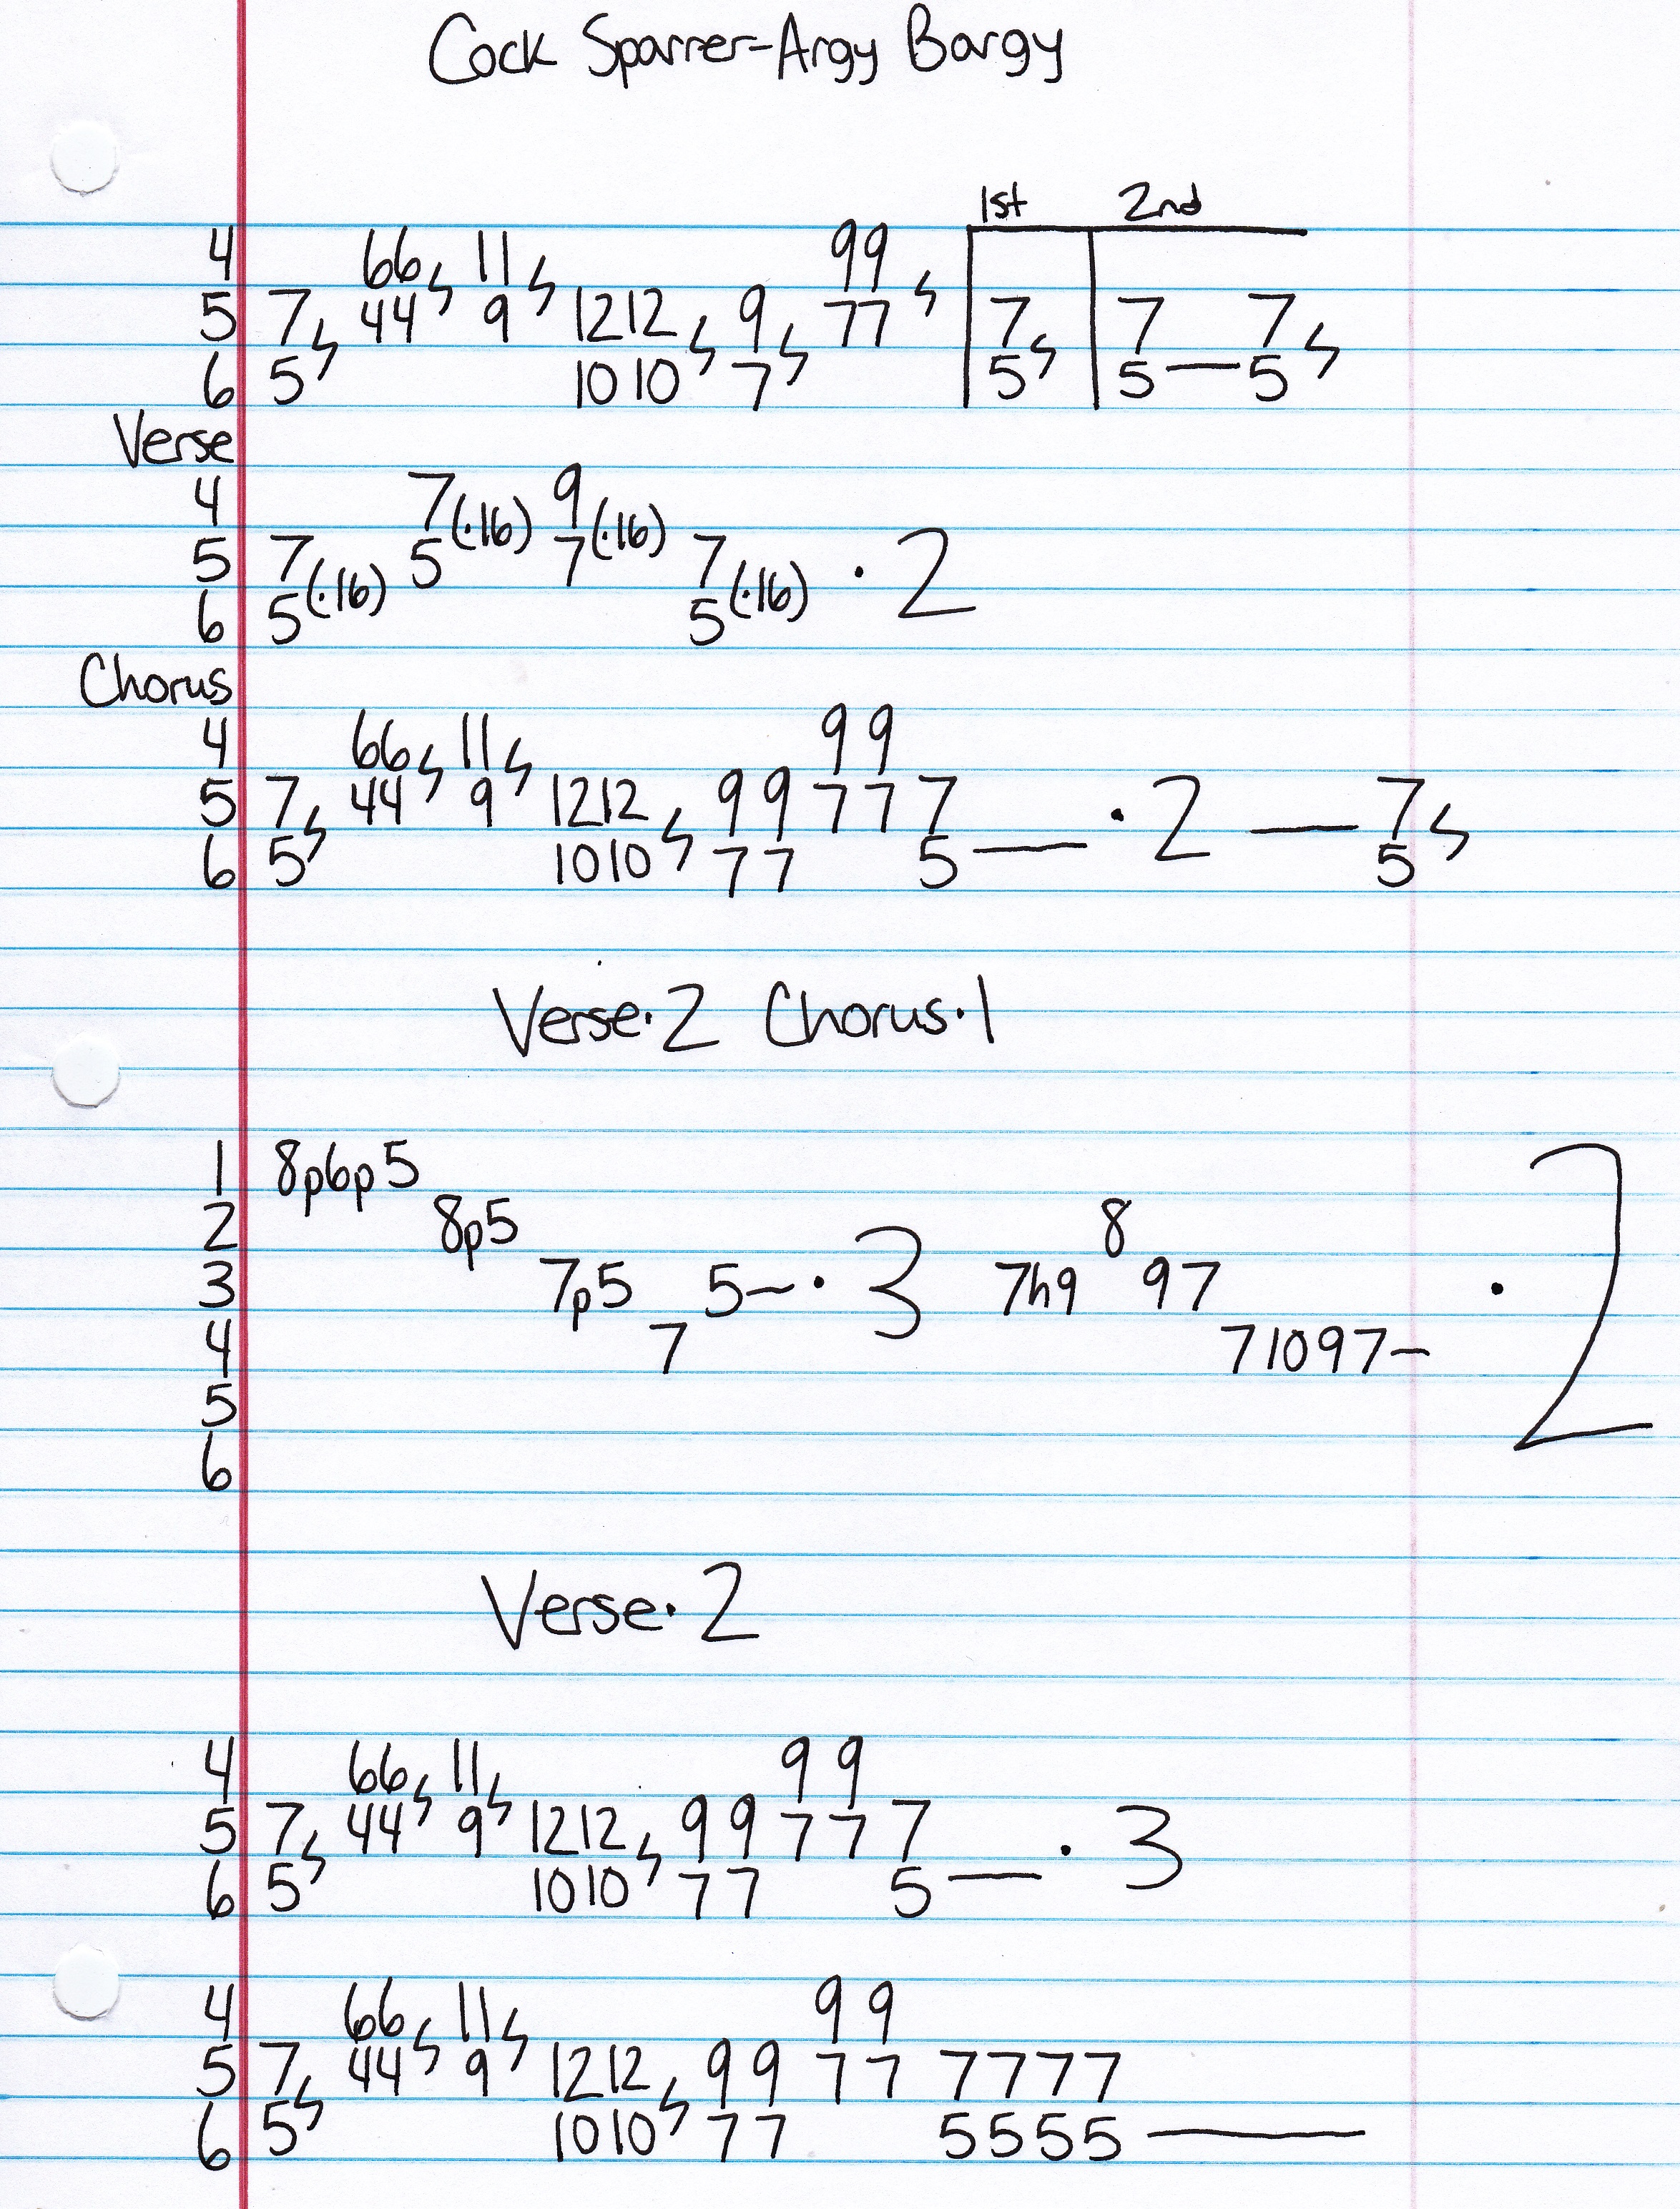 Cock Sparrer-Argy Bargy
1st 2nd
4 66 11 99
5 7 44 9 1212 9 77 7 7—7
6 5 1010 7 5 5 5
Verse
4 7(·16) 9(·16)
5 7(·16) 5 7 7(·16) · 2
6 5 5
Chorus
4 66 11 9 9
5 7 44 9 1212 9 9 7 7 7 · 2 — 7
6 5 1010 7 7 5— 5
Verse·2 Chorus·1
1 8p6p5
2 8p5 8
3 7p5 5~·3 7h9 97 ·2
4 7 71097-
5
6
Verse·2
4 66 11 9 9
5 7 44 9 1212 9 9 7 7 7
6 5 1010 7 7 5— · 3
4 66 11 9 9
5 7 44 9 1212 9 9 7 7 7777
6 5 1010 7 7 5555—